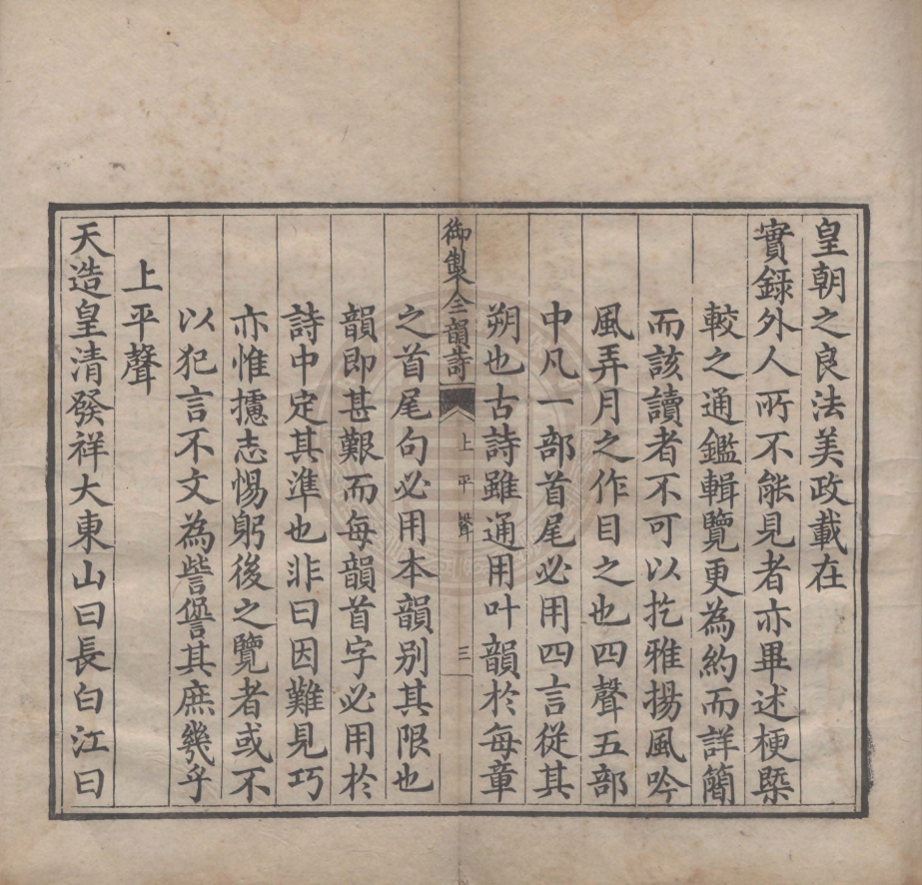 皇朝之良法美政載在
實錄外人所不能見者亦畢述梗槩
較之通鑑輯覽更為約而詳簡
而該讀者不可以扢雅揚風吟
風弄月之作目之也四聲五部
中凡一部首尾必用四言從其
朔也古詩雖通用叶韻於每章
御製全韻詩 上平聲 三
之首尾句必用本韻别其限也
韻即甚艱而每韻首字必用於
詩中定其準也非曰因難見巧
亦惟攄志惕躬後之覽者或不
以犯言不文為訾謷其庶幾乎
上平聲
天造皇清發祥大東山曰長白江曰